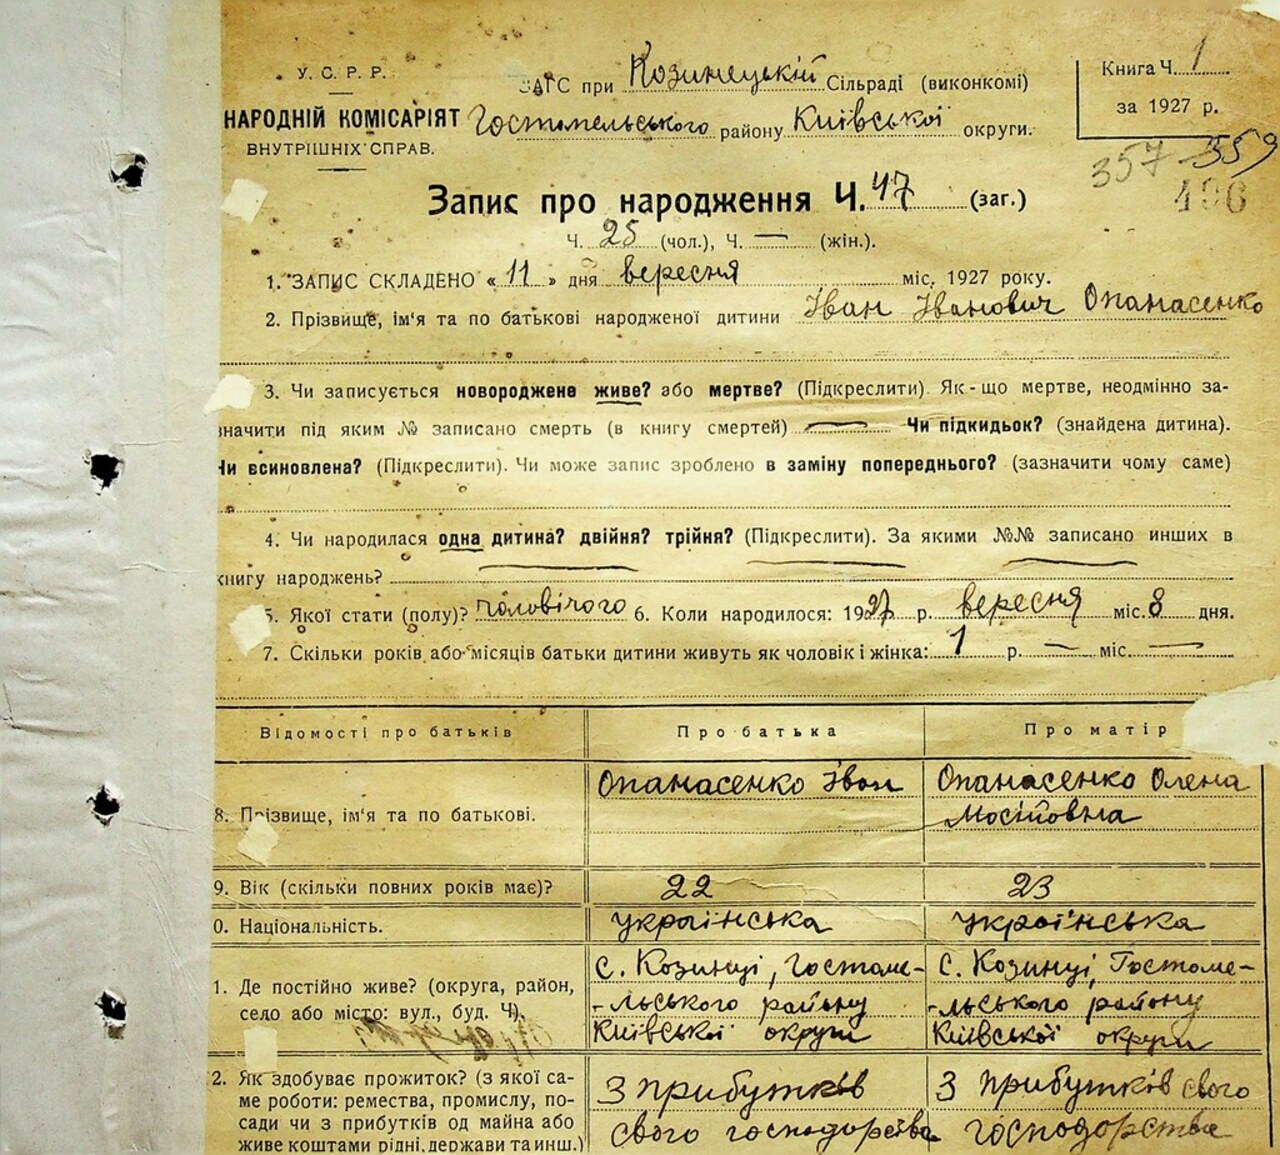 У. С. Р. Р.
НАРОДНІЙ КОМІСАРІЯТ
ВНУТРІШНІХ СПРАВ.
ЗАГС при Козинецькій Сільраді (виконкомі)
Гостомельського району Київської округи.
Книга Ч. 1
за 1927 р.
357 359
496
Запис про народження Ч. 47 (заг.)
Ч. 25 (чол.), Ч. — (жін.).
1. ЗАПИС СКЛАДЕНО « 11 » дня вересня міс. 1927 року.
2. Прізвище, ім'я та по батькові народженої дитини Іван Іванович Опанасенко
3. Чи записується новороджене живе? або мертве? (Підкреслити). Як-що мертве, неодмінно за-
значити під яким № записано смерть (в книгу смертей) — Чи підкидьок? (знайдена дитина).
Чи всиновлена? (Підкреслити). Чи може запис зроблено в заміну попереднього? (зазначити чому саме)
4. Чи народилася одна дитина? двійня? трійня? (Підкреслити). За якими №№ записано инших в
книгу народжень?
5. Якої стати (полу)? чоловічого 6. Коли народилося: 1927 р. вересня міс. 8 дня.
7. Скільки років або місяців батьки дитини живуть як чоловік і жінка: 1 р. — міс. —
Відомості про батьків Про батька Про матір
8. Прізвище, ім'я та по батькові. Опанасенко Іван Опанасенко Олена
Мосіїовна
9. Вік (скільки повних років має)? 22 23
0. Національність. українська українська
1. Де постійно живе? (округа, район, с. Козинці, Гостоме- с. Козинці, Гостоме-
село або місто: вул., буд. Ч). -льського району -льського району
Київської округи Київської округи
2. Як здобуває прожиток? (з якої са- З прибутків З прибутків свого
ме роботи: ремества, промислу, по- свого господарства господорства
сади чи з прибутків од майна або
живе коштами рідні, держави та инш.)